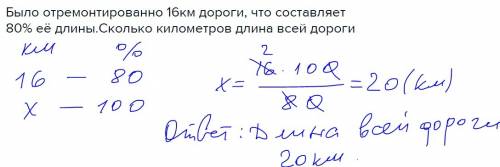 Было отремонтированно 16км дороги, что составляет
80% её длины.Сколько километров длина всей дороги
км %
16 — 80
x — 100
x = 16 2 · 100 / 80 = 20 (км)
Ответ: Длина всей дороги
20 км.